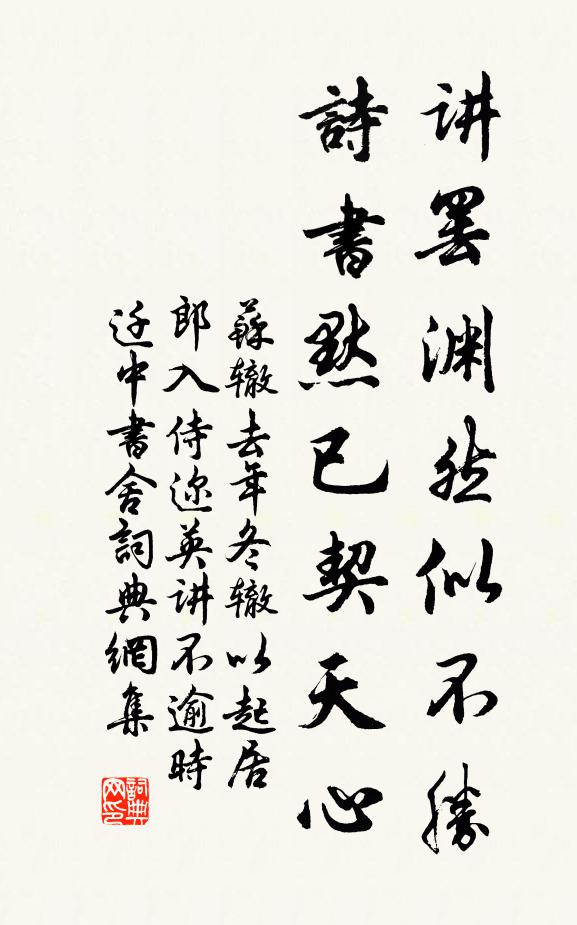 讲罢渊然似不勝
詩書默已契天心
蘇辙去年冬辙以起居
郎入侍迩英讲不逾時
迁中書舍詞典網集
詞典网印